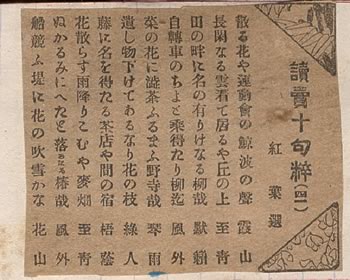 讀賣十句粹(四二)
紅葉選
散る花や運動會の鯨波の聲 霞山
長閑なる雲看て居るや丘の上 至青
田の畔に名の有りけなる柳哉 默蝸
自轉車のちよと乘得たり柳迄 風外
菜の花に澁茶ふるまふ野寺哉 琴雨
遺し物下けてあるなり花の枝 綠人
藤に名を得たる茶店や間の宿 梧蔭
花散らす雨降りこむや麥畑 至青
ぬかるみにへたと落たる椿哉 風外
船競ふ堤に花の吹雪かな 花山